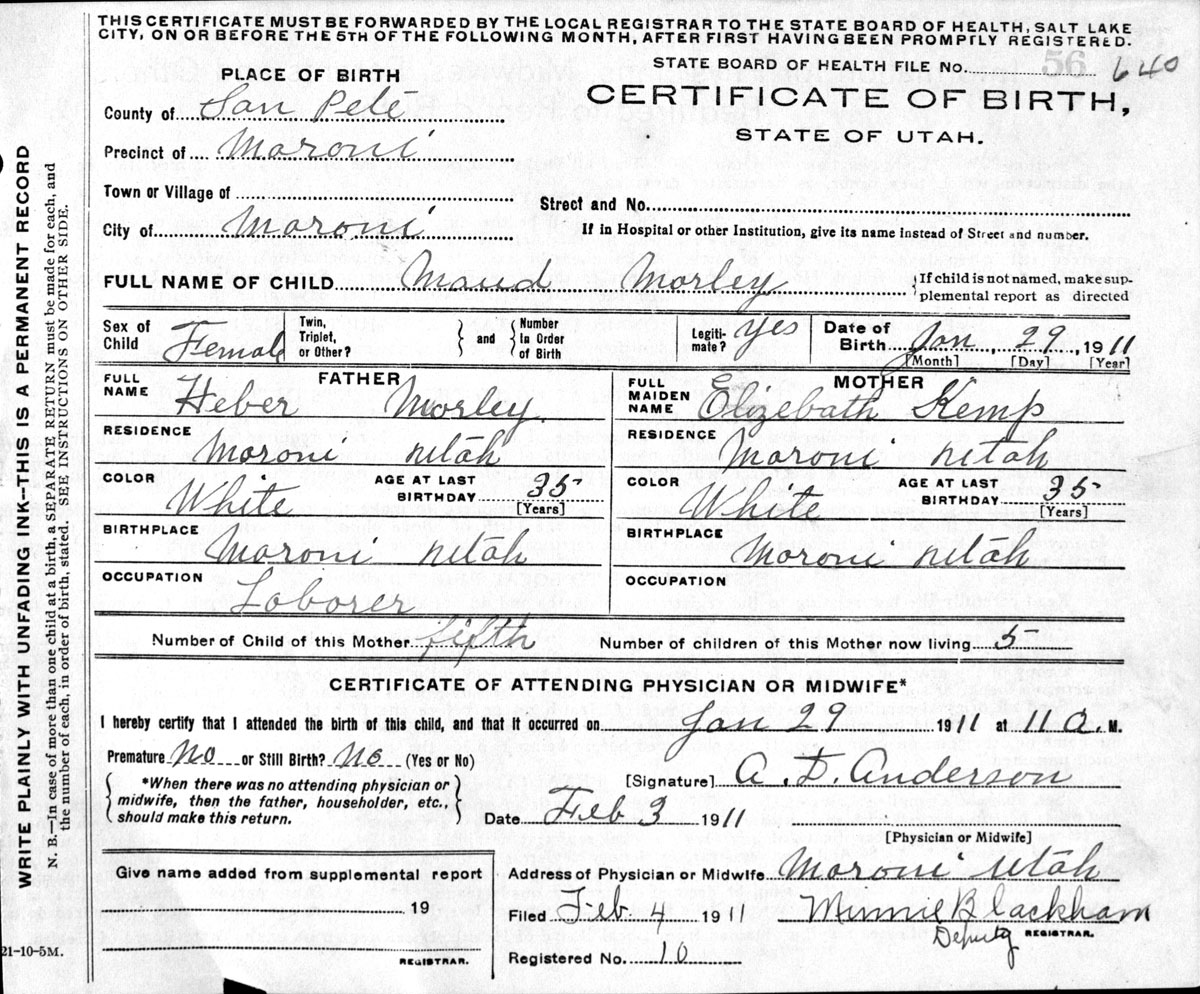 THIS CERTIFICATE MUST BE FORWARDED BY THE LOCAL REGISTRAR TO THE STATE BOARD OF HEALTH, SALT LAKE
CITY, ON OR BEFORE THE 5TH OF THE FOLLOWING MONTH, AFTER FIRST HAVING BEEN PROMPTLY REGISTERED.
STATE BOARD OF HEALTH FILE No. 56 640
PLACE OF BIRTH
CERTIFICATE OF BIRTH,
STATE OF UTAH.
County of San Pete
Precinct of Maroni
Town or Village of
Street and No.
City of Maroni
If in Hospital or other Institution, give its name instead of Street and number.
FULL NAME OF CHILD Maud Morley {If child is not named, make sup-
plemental report as directed
Sex of Child Female Twin, Triplet, or Other? } and { Number In Order of Birth Legiti- mate? Yes Date of Birth Jan, 29, 1911
[Month] [Day] [Year]
FATHER
FULL NAME Heber Morley.
RESIDENCE Maroni utah
COLOR White AGE AT LAST BIRTHDAY 35 [Years]
BIRTHPLACE Maroni utah
OCCUPATION Laborer
MOTHER
FULL MAIDEN NAME Elizebath Kemp
RESIDENCE Maroni utah
COLOR White AGE AT LAST BIRTHDAY 35 [Years]
BIRTHPLACE Maroni utah
OCCUPATION
Number of Child of this Mother fifth Number of children of this Mother now living 5
CERTIFICATE OF ATTENDING PHYSICIAN OR MIDWIFE*
I hereby certify that I attended the birth of this child, and that it occurred on Jan 29 1911 at 11 a. M.
Premature No or Still Birth? No (Yes or No)
{ *When there was no attending physician or
midwife, then the father, householder, etc.,
should make this return. }
[Signature] A. D. Anderson
Date Feb 3 1911
[Physician or Midwife]
Give name added from supplemental report
19
REGISTRAR.
Address of Physician or Midwife Maroni Utah
Filed Feb 4 1911 Minnie Blackham
Deputy REGISTRAR.
Registered No. 10
WRITE PLAINLY WITH UNFADING INK--THIS IS A PERMANENT RECORD
N. B.—In case of more than one child at a birth, a SEPARATE RETURN must be made for each, and
the number of each, in order of birth, stated. SEE INSTRUCTIONS ON OTHER SIDE.
21-10-5M.